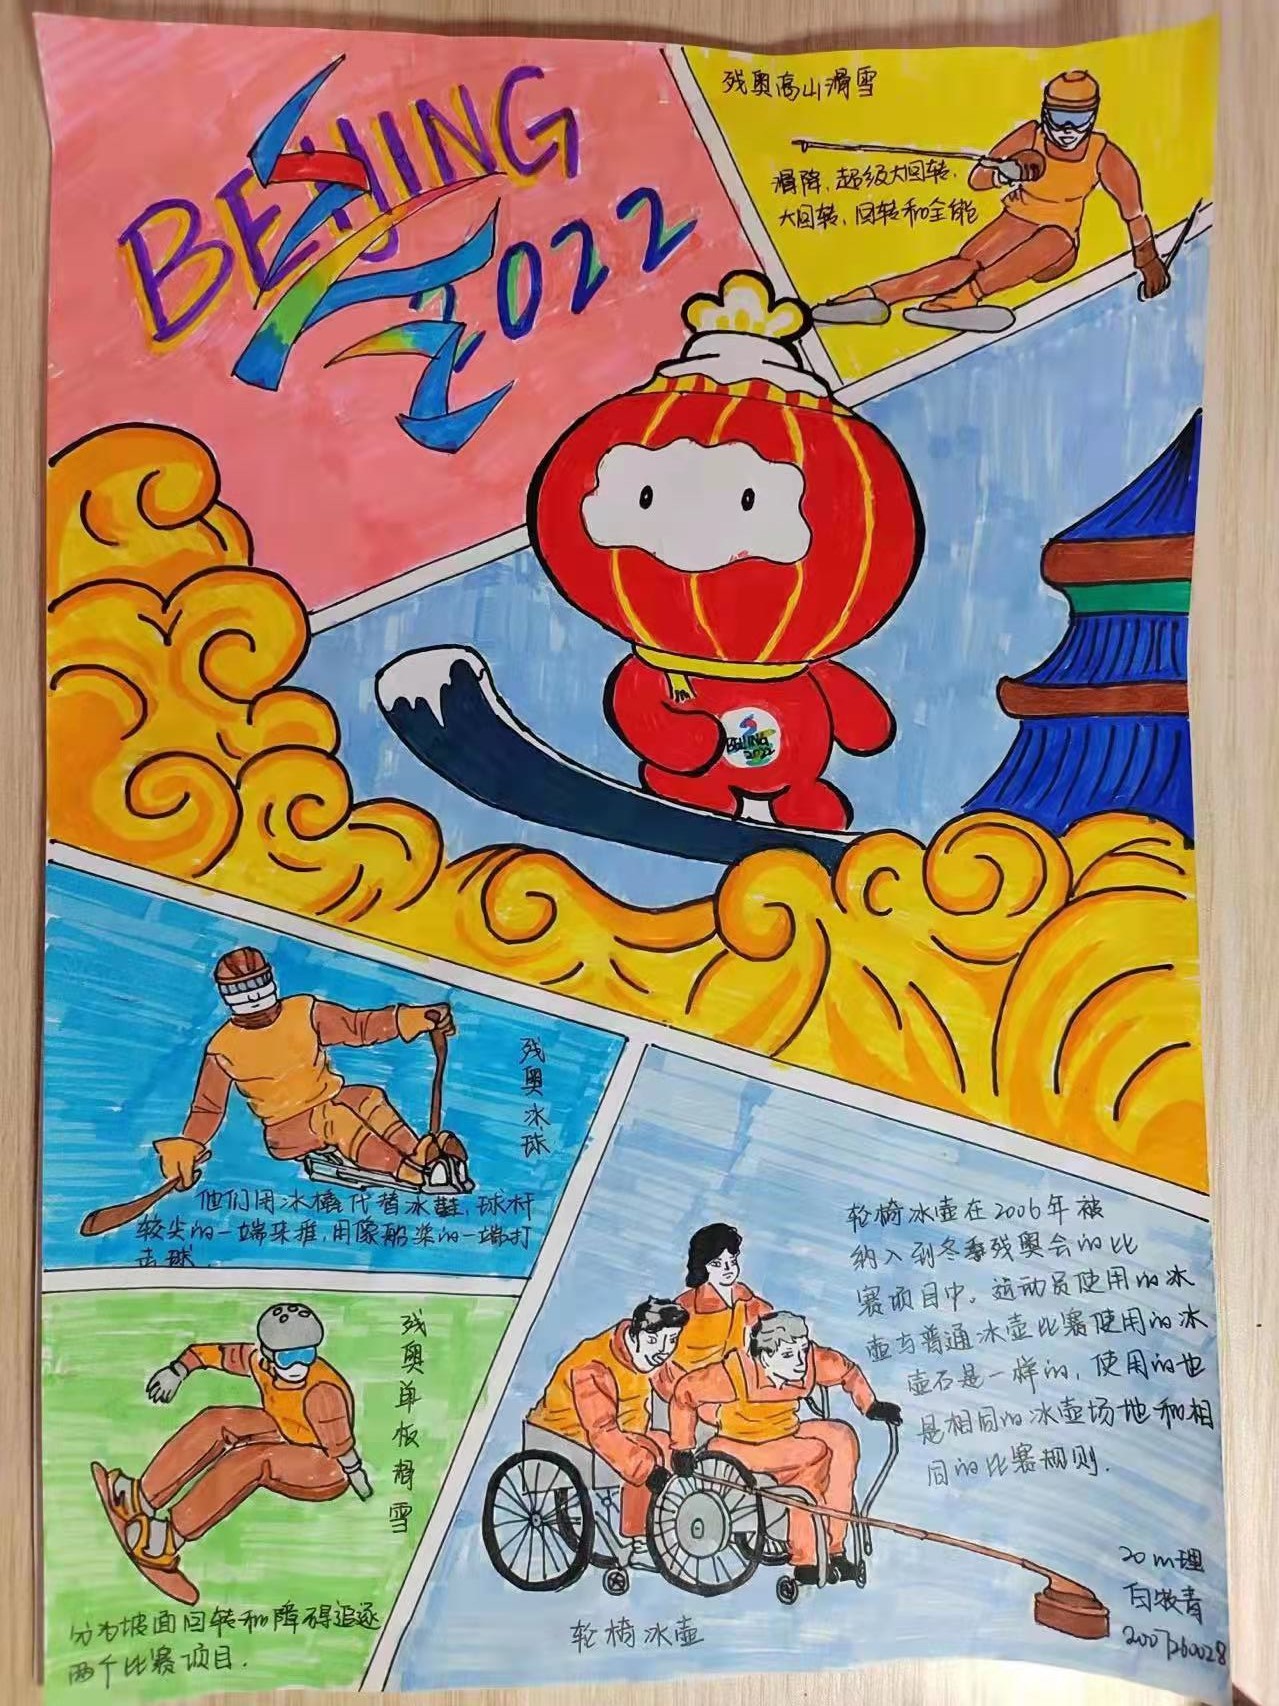 BEIJING
2022
残奥高山滑雪
滑降、超级大回转、
大回转、回转和全能
BEIJING
2022
残奥冰球
他们用冰橇代替冰鞋,球杆
较尖的一端来推,用像船桨的一端打
击球.
残奥单板滑雪
分为坡面回转和障碍追逐
两个比赛项目.
轮椅冰壶在2006年被
纳入到冬季残奥会的比
赛项目中。运动员使用的冰
壶与普通冰壶比赛使用的冰
壶石是一样的,使用的也
是相同的冰壶场地和相
同的比赛规则.
轮椅冰壶
20m理
白牧青